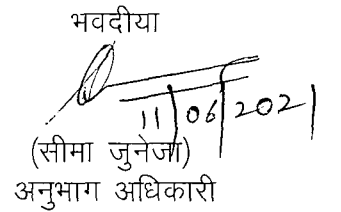 भवदीया
11/06/2021
(सीमा जुनेजा)
अनुभाग अधिकारी